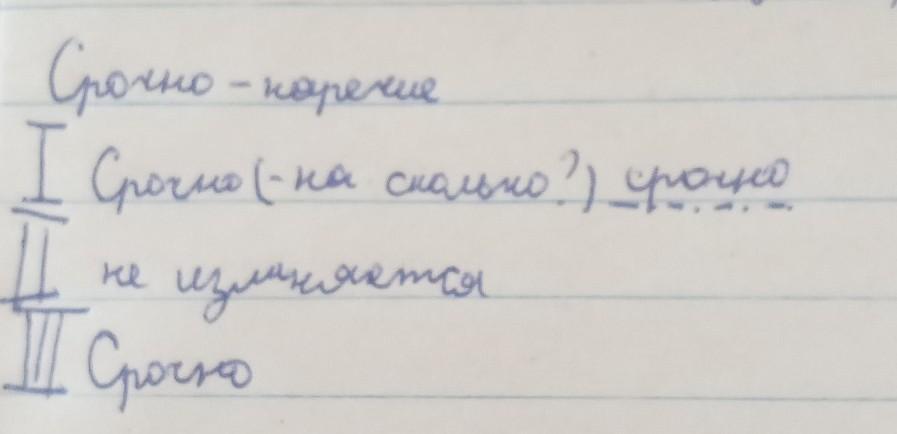 Срочно - наречие
I Срочно (- на сколько?) срочно
II не изменяется
III Срочно